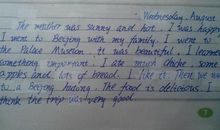 Wednesday, August
The weather was sunny and hot. I was happy
I went to Beijing with my family. I went to
the Palace Museum. it was beautiful. I learned
something important. I ate much chicke, some
apples and lots of bread. I like it. Then we
to a Beijing hutong. The food is delicious. I
think the trip was very good.